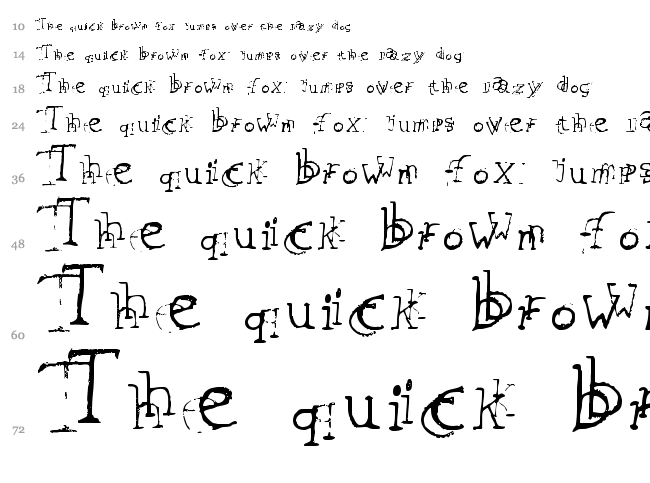 10 The quick brown fox jumps over the razy dog
14 The quick brown fox jumps over the razy dog
18 The quick brown fox jumps over the razy dog
24 The quick brown fox jumps over the ra
36 The quick brown fox jumps
48 The quick brown fo
60 The quick brown
72 The quick br